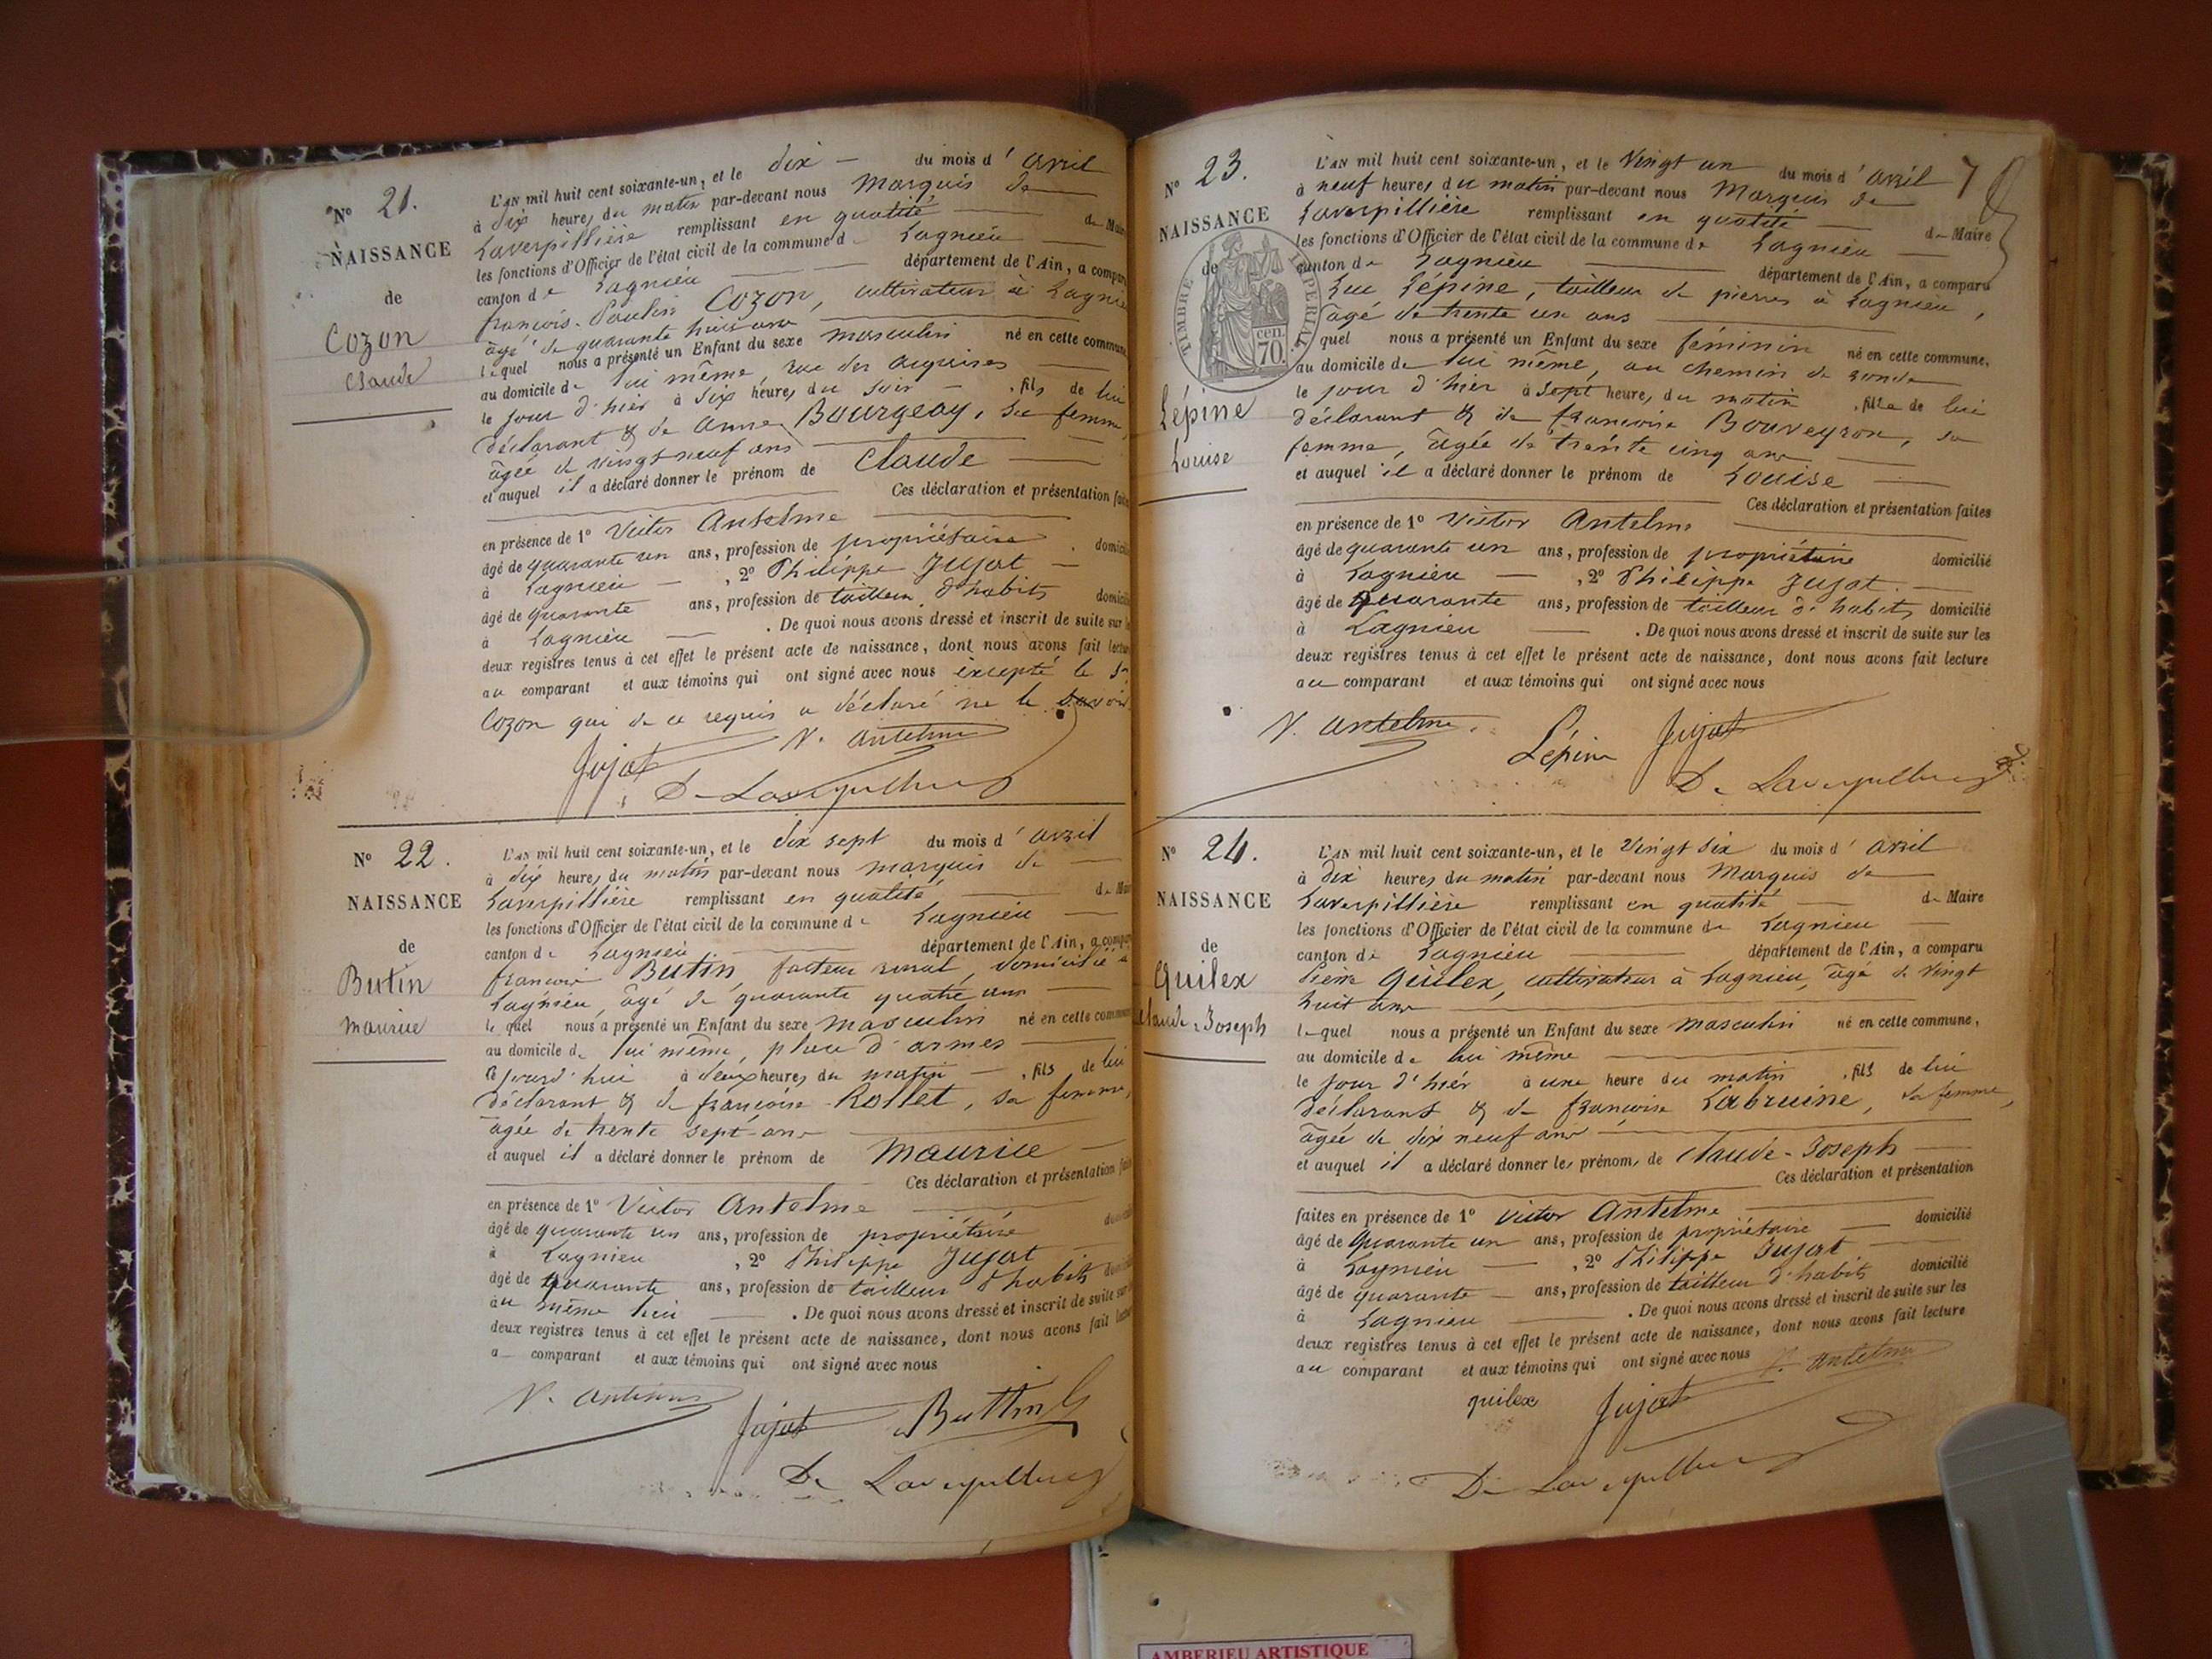 N° 21.
NAISSANCE
de
Cozon
Claude
L'AN mil huit cent soixante-un, et le dix du mois d'avril
à dix heures du matin par-devant nous Marquis de
Laverpillière remplissant en qualité de Maire
les fonctions d'Officier de l'état civil de la commune de Lagnieu
canton de Lagnieu département de l'Ain, a comparu
françois-Paulin Cozon, cultivateur à Lagnieu
âgé de quarante huit ans
lequel nous a présenté un Enfant du sexe masculin né en cette commune,
au domicile de lui même, rue des
le jour d'hier à six heures du soir, fils de lui
déclarant & de anne Bourgeay, sa femme,
âgée de vingt neuf ans
et auquel il a déclaré donner le prénom de Claude
Ces déclaration et présentation faites
en présence de 1° Victor Antelme
âgé de quarante un ans, profession de propriétaire, domicilié
à Lagnieu, 2° Philippe Jujat
âgé de quarante ans, profession de tailleur d'habits domicilié
à Lagnieu. De quoi nous avons dressé et inscrit de suite sur les
deux registres tenus à cet effet le présent acte de naissance, dont nous avons fait lecture
au comparant et aux témoins qui ont signé avec nous excepté le Sr
Cozon qui de ce requis a déclaré ne le savoir
Jujat V. Antelme
De Laverpillière
N° 22.
NAISSANCE
de
Butin
maurice
L'AN mil huit cent soixante-un, et le dix sept du mois d'avril
à dix heures du matin par-devant nous marquis de
Laverpillière remplissant en qualité de Maire
les fonctions d'Officier de l'état civil de la commune de Lagnieu
canton de Lagnieu département de l'Ain, a comparu
françois Butin facteur rural, domicilié à
Lagnieu, âgé de quarante quatre ans
le quel nous a présenté un Enfant du sexe masculin né en cette commune
au domicile de lui même, place d'armes
cejourd'hui à deux heures du matin, fils de lui
déclarant & de françoise Rollet, sa femme,
âgée de trente sept ans
et auquel il a déclaré donner le prénom de Maurice
Ces déclaration et présentation faites
en présence de 1° Victor Antelme
âgé de quarante un ans, profession de propriétaire domicilié
à Lagnieu, 2° Philippe Jujat
âgé de quarante ans, profession de tailleur d'habits domicilié
au même lieu. De quoi nous avons dressé et inscrit de suite sur
deux registres tenus à cet effet le présent acte de naissance, dont nous avons fait lecture
a comparant et aux témoins qui ont signé avec nous
V. Antelme Jujat Buttin
De Laverpillière
7
N° 23.
NAISSANCE
de
TIMBRE IMPERIAL
70 cen.
Lépine
Louise
L'AN mil huit cent soixante-un, et le vingt un du mois d'avril
à neuf heures du matin par-devant nous Marquis de
Laverpillière remplissant en qualité de Maire
les fonctions d'Officier de l'état civil de la commune de Lagnieu
canton de Lagnieu département de l'Ain, a comparu
Luc Lépine, tailleur de pierres à Lagnieu,
âgé de trente un ans
quel nous a présenté un Enfant du sexe féminin né en cette commune,
au domicile de lui même, au chemin de ronde
le jour d'hier à sept heures du matin, fille de lui
déclarant & de françoise Bouveyron, sa
femme, âgée de trente cinq ans
et auquel il a déclaré donner le prénom de Louise
Ces déclaration et présentation faites
en présence de 1° Victor Antelme
âgé de quarante un ans, profession de propriétaire domicilié
à Lagnieu, 2° Philippe Jujat.
âgé de quarante ans, profession de tailleur d'habits domicilié
à Lagnieu. De quoi nous avons dressé et inscrit de suite sur les
deux registres tenus à cet effet le présent acte de naissance, dont nous avons fait lecture
au comparant et aux témoins qui ont signé avec nous
V. Antelme. Lépine Jujat
De Laverpillière
N° 24.
NAISSANCE
de
Quilex
Claude-Joseph
L'AN mil huit cent soixante-un, et le vingt six du mois d'avril
à dix heures du matin par-devant nous Marquis de
Laverpillière remplissant en qualité de Maire
les fonctions d'Officier de l'état civil de la commune de Lagnieu
canton de Lagnieu département de l'Ain, a comparu
Pierre Quilex, cultivateur à Lagnieu, âgé de vingt
huit ans
lequel nous a présenté un Enfant du sexe masculin né en cette commune,
au domicile de lui même
le jour d'hier à une heure du matin, fils de lui
déclarant & de françoise Labruine, sa femme,
âgée de dix neuf ans
et auquel il a déclaré donner les prénoms de Claude-Joseph
Ces déclaration et présentation
faites en présence de 1° Victor Antelme
âgé de quarante un ans, profession de propriétaire domicilié
à Lagnieu, 2° Philippe Jujat
âgé de quarante ans, profession de tailleur d'habits domicilié
à Lagnieu. De quoi nous avons dressé et inscrit de suite sur les
deux registres tenus à cet effet le présent acte de naissance, dont nous avons fait lecture
au comparant et aux témoins qui ont signé avec nous V. Antelme
quilex Jujat
De Laverpillière
AMBERIEU ARTISTIQUE